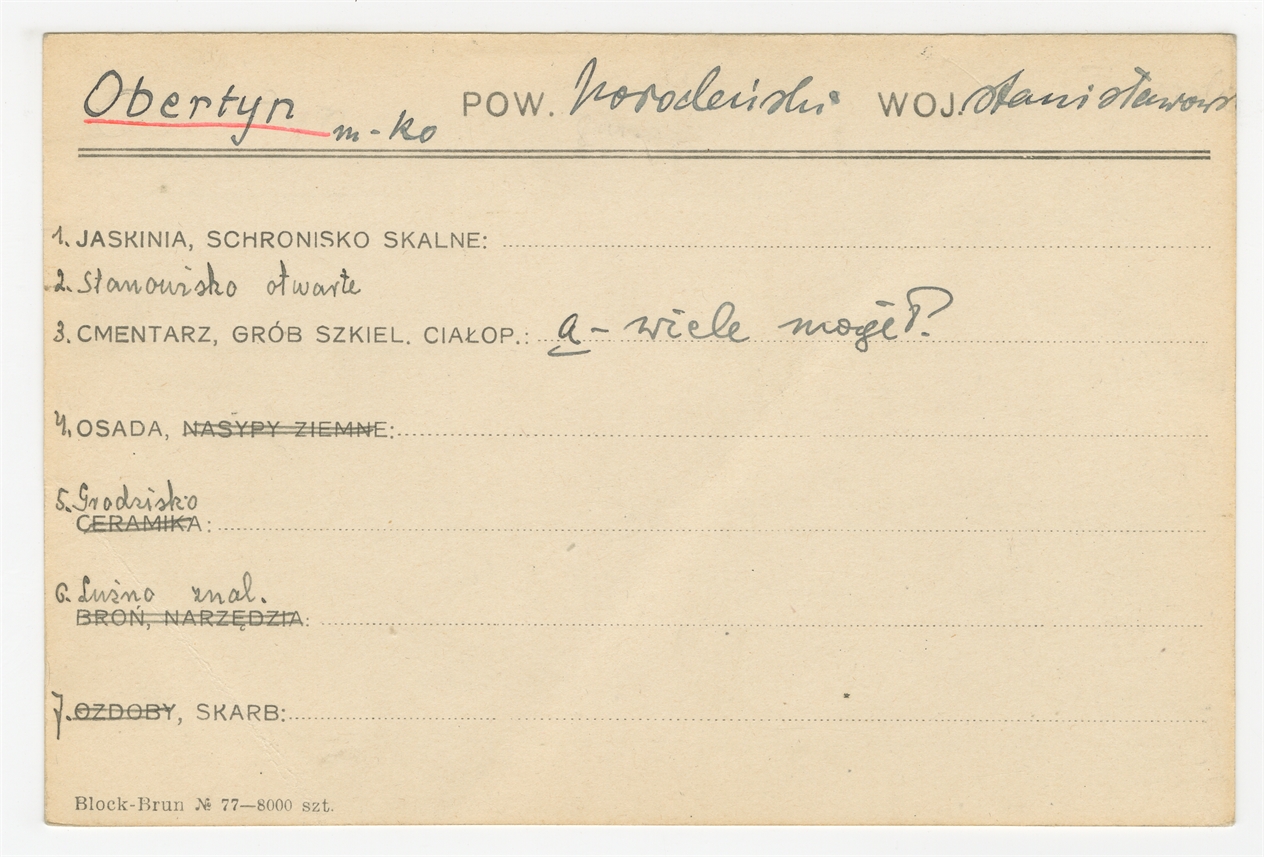 Obertyn m-ko POW. horodeński WOJ. stanisławow
1. JASKINIA, SCHRONISKO SKALNE:
2. Stanowisko otwarte
3. CMENTARZ, GRÓB SZKIEL. CIAŁOP.: a - wiele mogił?
4. OSADA, NASYPY ZIEMNE:
5. Grodzisko
CERAMIKA:
6. Luźno znal.
BROŃ, NARZĘDZIA:
7. OZDOBY, SKARB:
Block-Brun № 77—8000 szt.